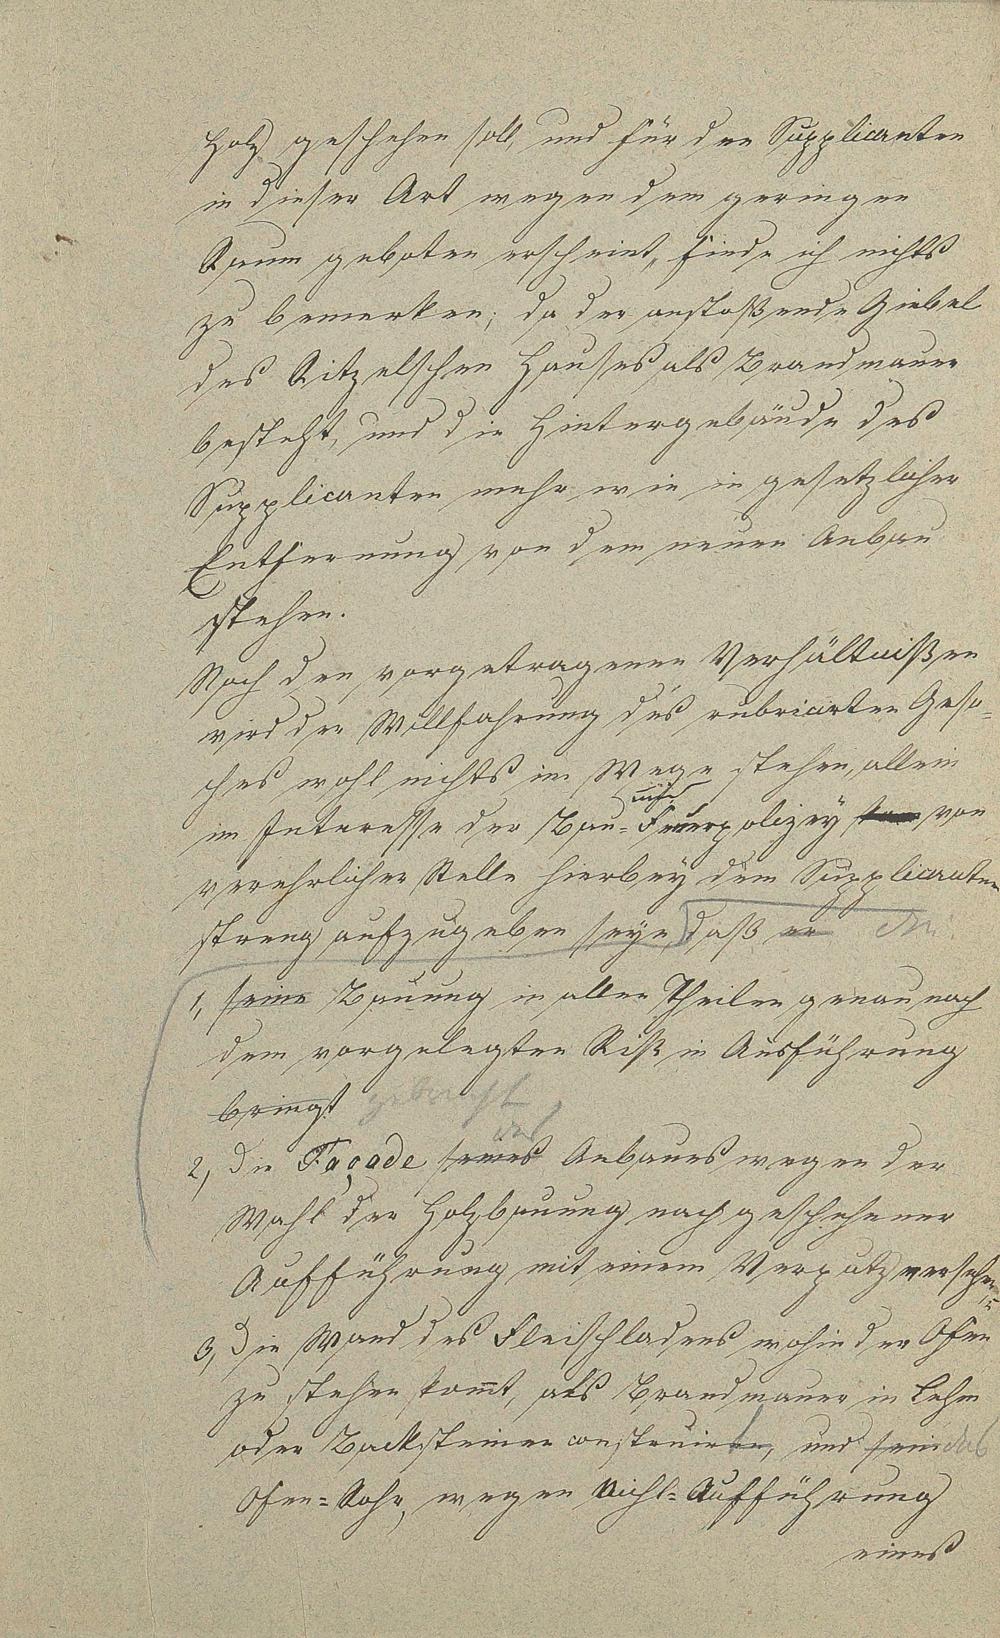 Holz geschehen soll, und für den Supplicanten
in dieser Art wegen dem geringen
Raum geboten erscheint, finde ich nichts
zu bemerken; da der anstoßende Giebel
des Ritzelschen Hauses als Brandmauer
besteht, und die Hintergebäude des
Supplicanten mehr wie in gesetzlicher
Entfernung von dem neuen Anbau
stehen.
Nach den vorgetragenen Verhältnißen
wird der Willfahrung des rubricirten Gesu-
ches wohl nichts im Wege stehen, allein
im Interesse der Bau- Feuerpolizey von
verehrlicher Stelle hierbey dem Supplicanten
streng aufzugeben seye, daß er die
1, seine Bauung in allen Theilen genau nach
dem vorgelegten Riß in Ausführung
bringt gebracht,
des
2, Die Façade seines Anbaues wegen der
Wahl der Holzbauung nach geschehener
Aufführung mit einem Verputz versehen
3, Die Wand des Fleischladens wohin der Ofen
zu stehen kommt, als Brandmauer in Lehm
oder Backsteinen construirt, und sein das
Ofen-Rohr, wegen Nicht-Aufführung
eines